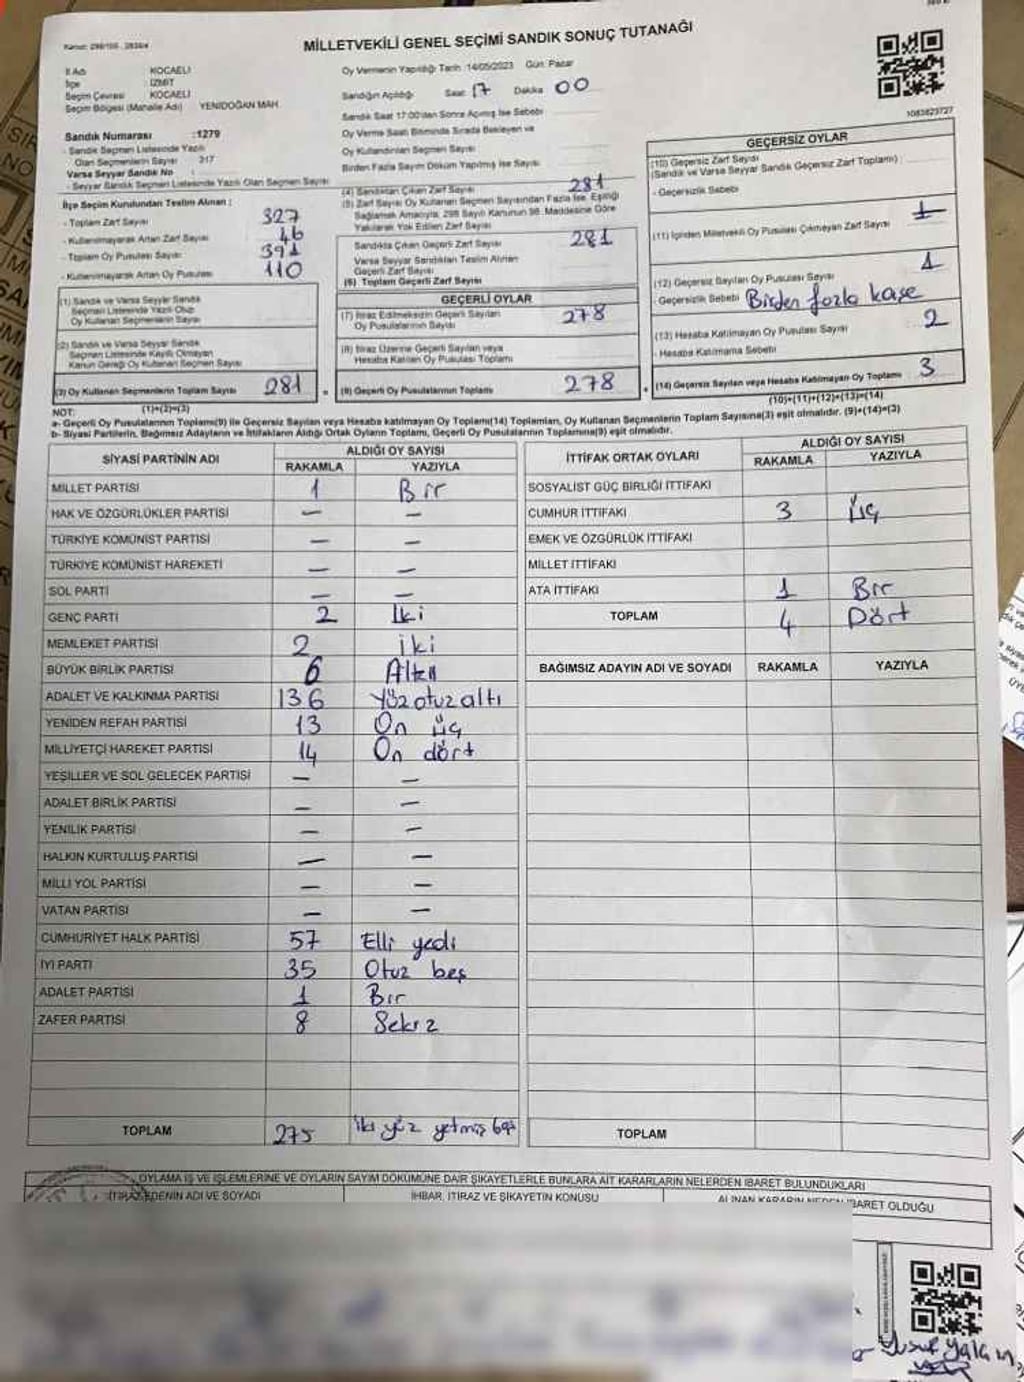 Kanun: 298/105 - 2839/4
MİLLETVEKİLİ GENEL SEÇİMİ SANDIK SONUÇ TUTANAĞI
İl Adı : KOCAELİ
İlçe : İZMİT
Seçim Çevresi : KOCAELİ
Seçim Bölgesi (Mahalle Adı) : YENİDOĞAN MAH.
Oy Vermenin Yapıldığı Tarih :14/05/2023 Gün: Pazar
Sandığın Açıldığı Saat: 17 Dakika 00
Sandık Saat 17:00'den Sonra Açılmış İse Sebebi
1083823727
Sandık Numarası :1279
- Sandık Seçmen Listesinde Yazılı
Olan Seçmenlerin Sayısı 317
Varsa Seyyar Sandık No :
- Seyyar Sandık Seçmen Listesinde Yazılı Olan Seçmen Sayısı
Oy Verme Saati Bitiminde Sırada Bekleyen ve
Oy Kullandırılan Seçmen Sayısı
Birden Fazla Sayım Döküm Yapılmış İse Sayısı
İlçe Seçim Kurulundan Teslim Alınan :
- Toplam Zarf Sayısı 327
- Kullanılmayarak Artan Zarf Sayısı 46
- Toplam Oy Pusulası Sayısı 391
- Kullanılmayarak Artan Oy Pusulası 110
(1) Sandık ve Varsa Seyyar Sandık
Seçmen Listesinde Yazılı Olup
Oy Kullanan Seçmenlerin Sayısı
(2) Sandık ve Varsa Seyyar Sandık
Seçmen Listesinde Kayıtlı Olmayan
Kanun Gereği Oy Kullanan Seçmen Sayısı
(3) Oy Kullanan Seçmenlerin Toplam Sayısı 281
(1)+(2)=(3)
(4) Sandıktan Çıkan Zarf Sayısı 281
(5) Zarf Sayısı Oy Kullanan Seçmen Sayısından Fazla İse, Eşitliği
Sağlamak Amacıyla, 298 Sayılı Kanunun 98. Maddesine Göre
Yakılarak Yok Edilen Zarf Sayısı
Sandıkta Çıkan Geçerli Zarf Sayısı 281
Varsa Seyyar Sandıktan Teslim Alınan
Geçerli Zarf Sayısı
(6) Toplam Geçerli Zarf Sayısı
GEÇERLİ OYLAR
(7) İtiraz Edilmeksizin Geçerli Sayılan
Oy Pusulalarının Sayısı 278
(8) İtiraz Üzerine Geçerli Sayılan veya
Hesaba Katılan Oy Pusulası Toplamı
(9) Geçerli Oy Pusulalarının Toplamı 278
GEÇERSİZ OYLAR
(10) Geçersiz Zarf Sayısı
(Sandık ve Varsa Seyyar Sandık Geçersiz Zarf Toplamı)
- Geçersizlik Sebebi
(11) İçinden Milletvekili Oy Pusulası Çıkmayan Zarf Sayısı
(12) Geçersiz Sayılan Oy Pusulası Sayısı 1
- Geçersizlik Sebebi Birden fazla kaşe
(13) Hesaba Katılmayan Oy Pusulası Sayısı 2
- Hesaba Katılmama Sebebi
(14) Geçersiz Sayılan veya Hesaba Katılmayan Oy Toplamı 3
(10)+(11)+(12)+(13)=(14)
NOT:
a- Geçerli Oy Pusulalarının Toplamı(9) ile Geçersiz Sayılan veya Hesaba katılmayan Oy Toplamı(14) Toplamları, Oy Kullanan Seçmenlerin Toplam Sayısına(3) eşit olmalıdır. (9)+(14)=(3)
b- Siyasi Partilerin, Bağımsız Adayların ve İttifakların Aldığı Ortak Oyların Toplamı, Geçerli Oy Pusulalarının Toplamına(9) eşit olmalıdır.
SİYASİ PARTİNİN ADI ALDIĞI OY SAYISI
RAKAMLA YAZIYLA
MİLLET PARTİSİ 1 Bir
HAK VE ÖZGÜRLÜKLER PARTİSİ — —
TÜRKİYE KOMÜNİST PARTİSİ — —
TÜRKİYE KOMÜNİST HAREKETİ — —
SOL PARTİ — —
GENÇ PARTİ 2 İki
MEMLEKET PARTİSİ 2 iki
BÜYÜK BİRLİK PARTİSİ 6 Altı
ADALET VE KALKINMA PARTİSİ 136 Yüz otuz altı
YENİDEN REFAH PARTİSİ 13 On üç
MİLLİYETÇİ HAREKET PARTİSİ 14 On dört
YEŞİLLER VE SOL GELECEK PARTİSİ — —
ADALET BİRLİK PARTİSİ — —
YENİLİK PARTİSİ — —
HALKIN KURTULUŞ PARTİSİ — —
MİLLİ YOL PARTİSİ — —
VATAN PARTİSİ — —
CUMHURİYET HALK PARTİSİ 57 Elli yedi
İYİ PARTİ 35 Otuz beş
ADALET PARTİSİ 1 Bir
ZAFER PARTİSİ 8 Sekiz
TOPLAM 275 iki yüz yetmiş beş
İTTİFAK ORTAK OYLARI ALDIĞI OY SAYISI
RAKAMLA YAZIYLA
SOSYALİST GÜÇ BİRLİĞİ İTTİFAKI
CUMHUR İTTİFAKI 3 üç
EMEK VE ÖZGÜRLÜK İTTİFAKI
MİLLET İTTİFAKI
ATA İTTİFAKI 1 Bir
TOPLAM 4 Dört
BAĞIMSIZ ADAYIN ADI VE SOYADI RAKAMLA YAZIYLA
TOPLAM
OYLAMA İŞ VE İŞLEMLERİNE VE OYLARIN SAYIM DÖKÜMÜNE DAİR ŞİKAYETLERLE BUNLARA AİT KARARLARIN NELERDEN İBARET BULUNDUKLARI
İTİRAZ EDENİN ADI VE SOYADI İHBAR, İTİRAZ VE ŞİKAYETİN KONUSU ALINAN KARARIN NEDEN İBARET OLDUĞU
Yusuf Yalçın